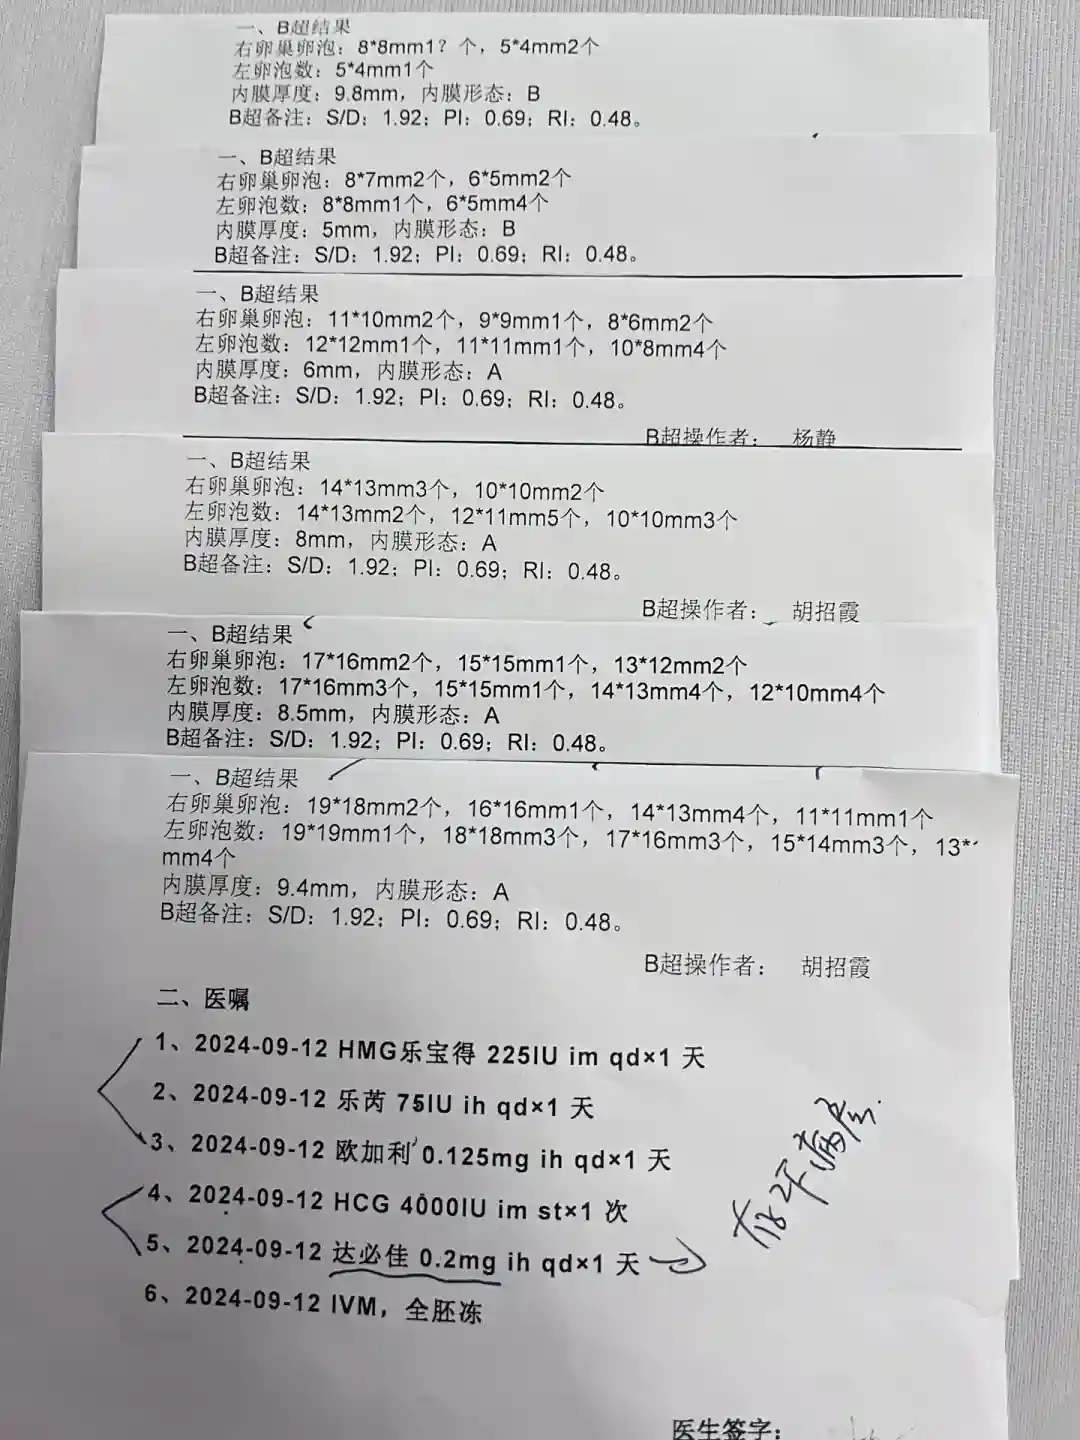 一、B超结果
右卵巢卵泡：8*8mm1？个，5*4mm2个
左卵泡数：5*4mm1个
内膜厚度：9.8mm，内膜形态：B
B超备注：S/D：1.92；PI：0.69；RI：0.48。
一、B超结果
右卵巢卵泡：8*7mm2个，6*5mm2个
左卵泡数：8*8mm1个，6*5mm4个
内膜厚度：5mm，内膜形态：B
B超备注：S/D：1.92；PI：0.69；RI：0.48。
一、B超结果
右卵巢卵泡：11*10mm2个，9*9mm1个，8*6mm2个
左卵泡数：12*12mm1个，11*11mm1个，10*8mm4个
内膜厚度：6mm，内膜形态：A
B超备注：S/D：1.92；PI：0.69；RI：0.48。
B超操作者： 杨静
一、B超结果
右卵巢卵泡：14*13mm3个，10*10mm2个
左卵泡数：14*13mm2个，12*11mm5个，10*10mm3个
内膜厚度：8mm，内膜形态：A
B超备注：S/D：1.92；PI：0.69；RI：0.48。
B超操作者： 胡招霞
一、B超结果
右卵巢卵泡：17*16mm2个，15*15mm1个，13*12mm2个
左卵泡数：17*16mm3个，15*15mm1个，14*13mm4个，12*10mm4个
内膜厚度：8.5mm，内膜形态：A
B超备注：S/D：1.92；PI：0.69；RI：0.48。
一、B超结果
右卵巢卵泡：19*18mm2个，16*16mm1个，14*13mm4个，11*11mm1个
左卵泡数：19*19mm1个，18*18mm3个，17*16mm3个，15*14mm3个，13*
mm4个
内膜厚度：9.4mm，内膜形态：A
B超备注：S/D：1.92；PI：0.69；RI：0.48。
B超操作者： 胡招霞
二、医嘱
1、2024-09-12 HMG乐宝得 225IU im qd×1 天
2、2024-09-12 乐芮 75IU ih qd×1 天
3、2024-09-12 欧加利 0.125mg ih qd×1 天
4、2024-09-12 HCG 4000IU im st×1 次
5、2024-09-12 达必佳 0.2mg ih qd×1 天
6、2024-09-12 IVM，全胚冻
医生签字：